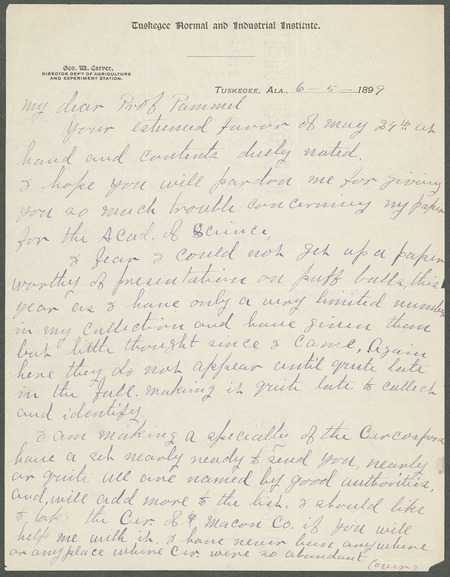 Tuskegee Normal and Industrial Institute.
Geo. W. Carver,
DIRECTOR DEP'T OF AGRICULTURE
AND EXPERIMENT STATION.
TUSKEGEE, ALA., 6-5-1899
My dear Prof Pammel
Your esteemed favor of may 29th at
hand and contents duly noted.
I hope you will pardon me for giving
you so much trouble concerning my paper
for the Acad. of Science,
I fear I could not get up a paper
worthy of presentation on puff balls, this
year as I have only a very limited number
in my collection and have given them
but little thought since I came, Again
here they do not appear until quite late
in the fall. making it quite late to collect
and identify.
I am making a specialty of the Cercospora
have a set nearly ready to send you, nearly
or quite all are named by good authorities,
and, will add more to the list. I should like
to the Cer. of Macon Co. if you will
help me with it, I have never been anywhere
or any place where Cer. were so abundant
(over)